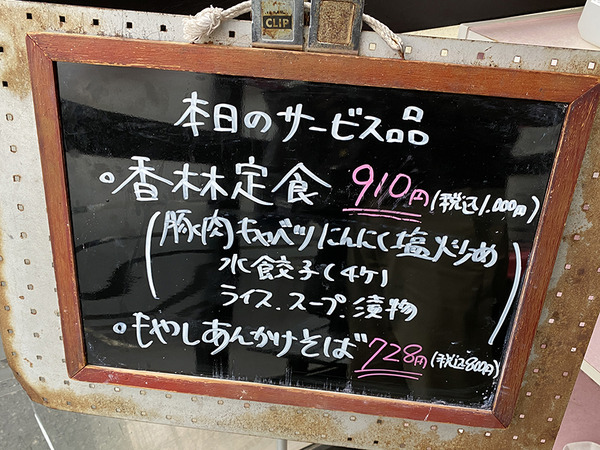 CLIP
本日のサービス品
○香林定食 910円(税込1.000円)
(豚肉キャベツにんにく塩炒め
水餃子(4ケ)
ライス.スープ.漬物)
○もやしあんかけそば 728円(税込800円)